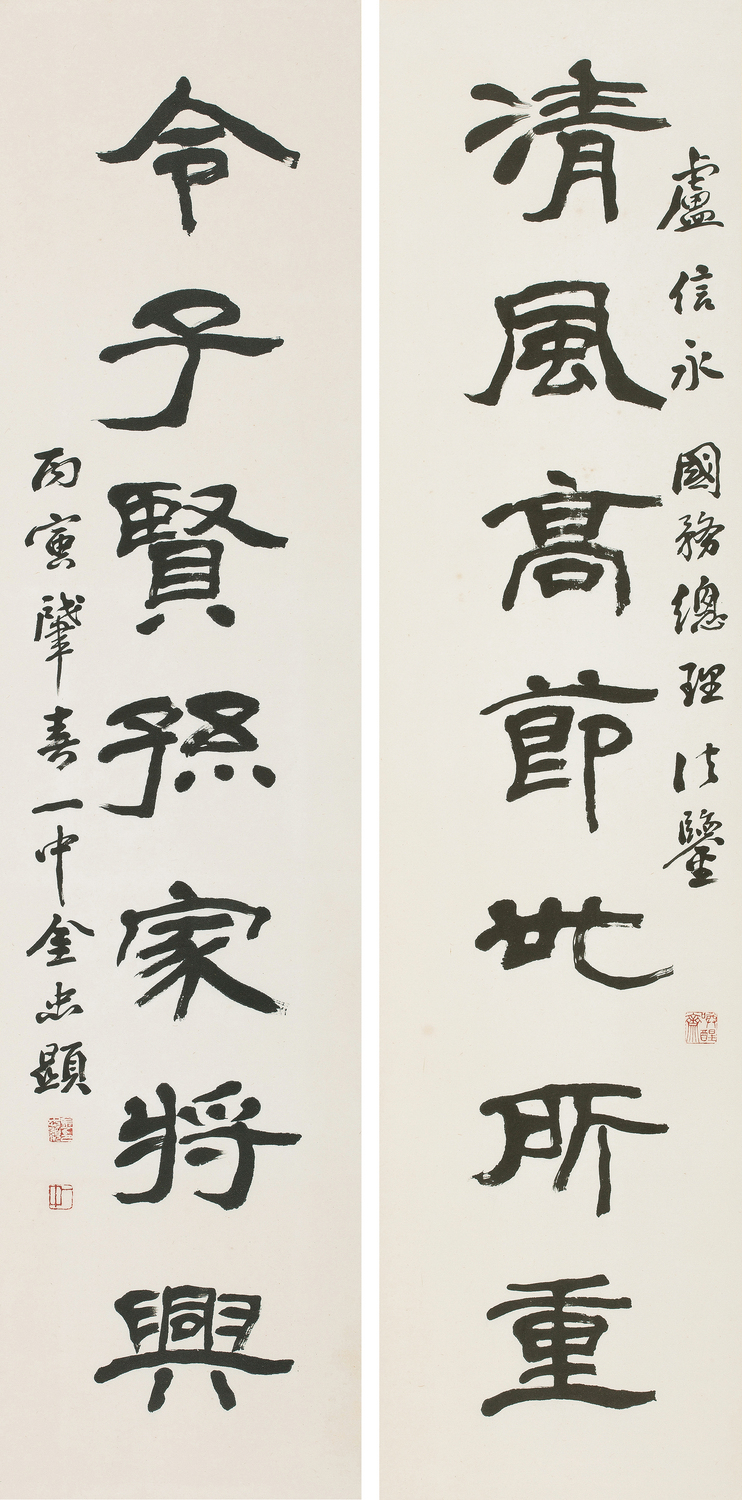 盧信永 國務總理 法鑒
清風高節世所重
令子賢孫家將興
丙寅肇春一中金忠顯